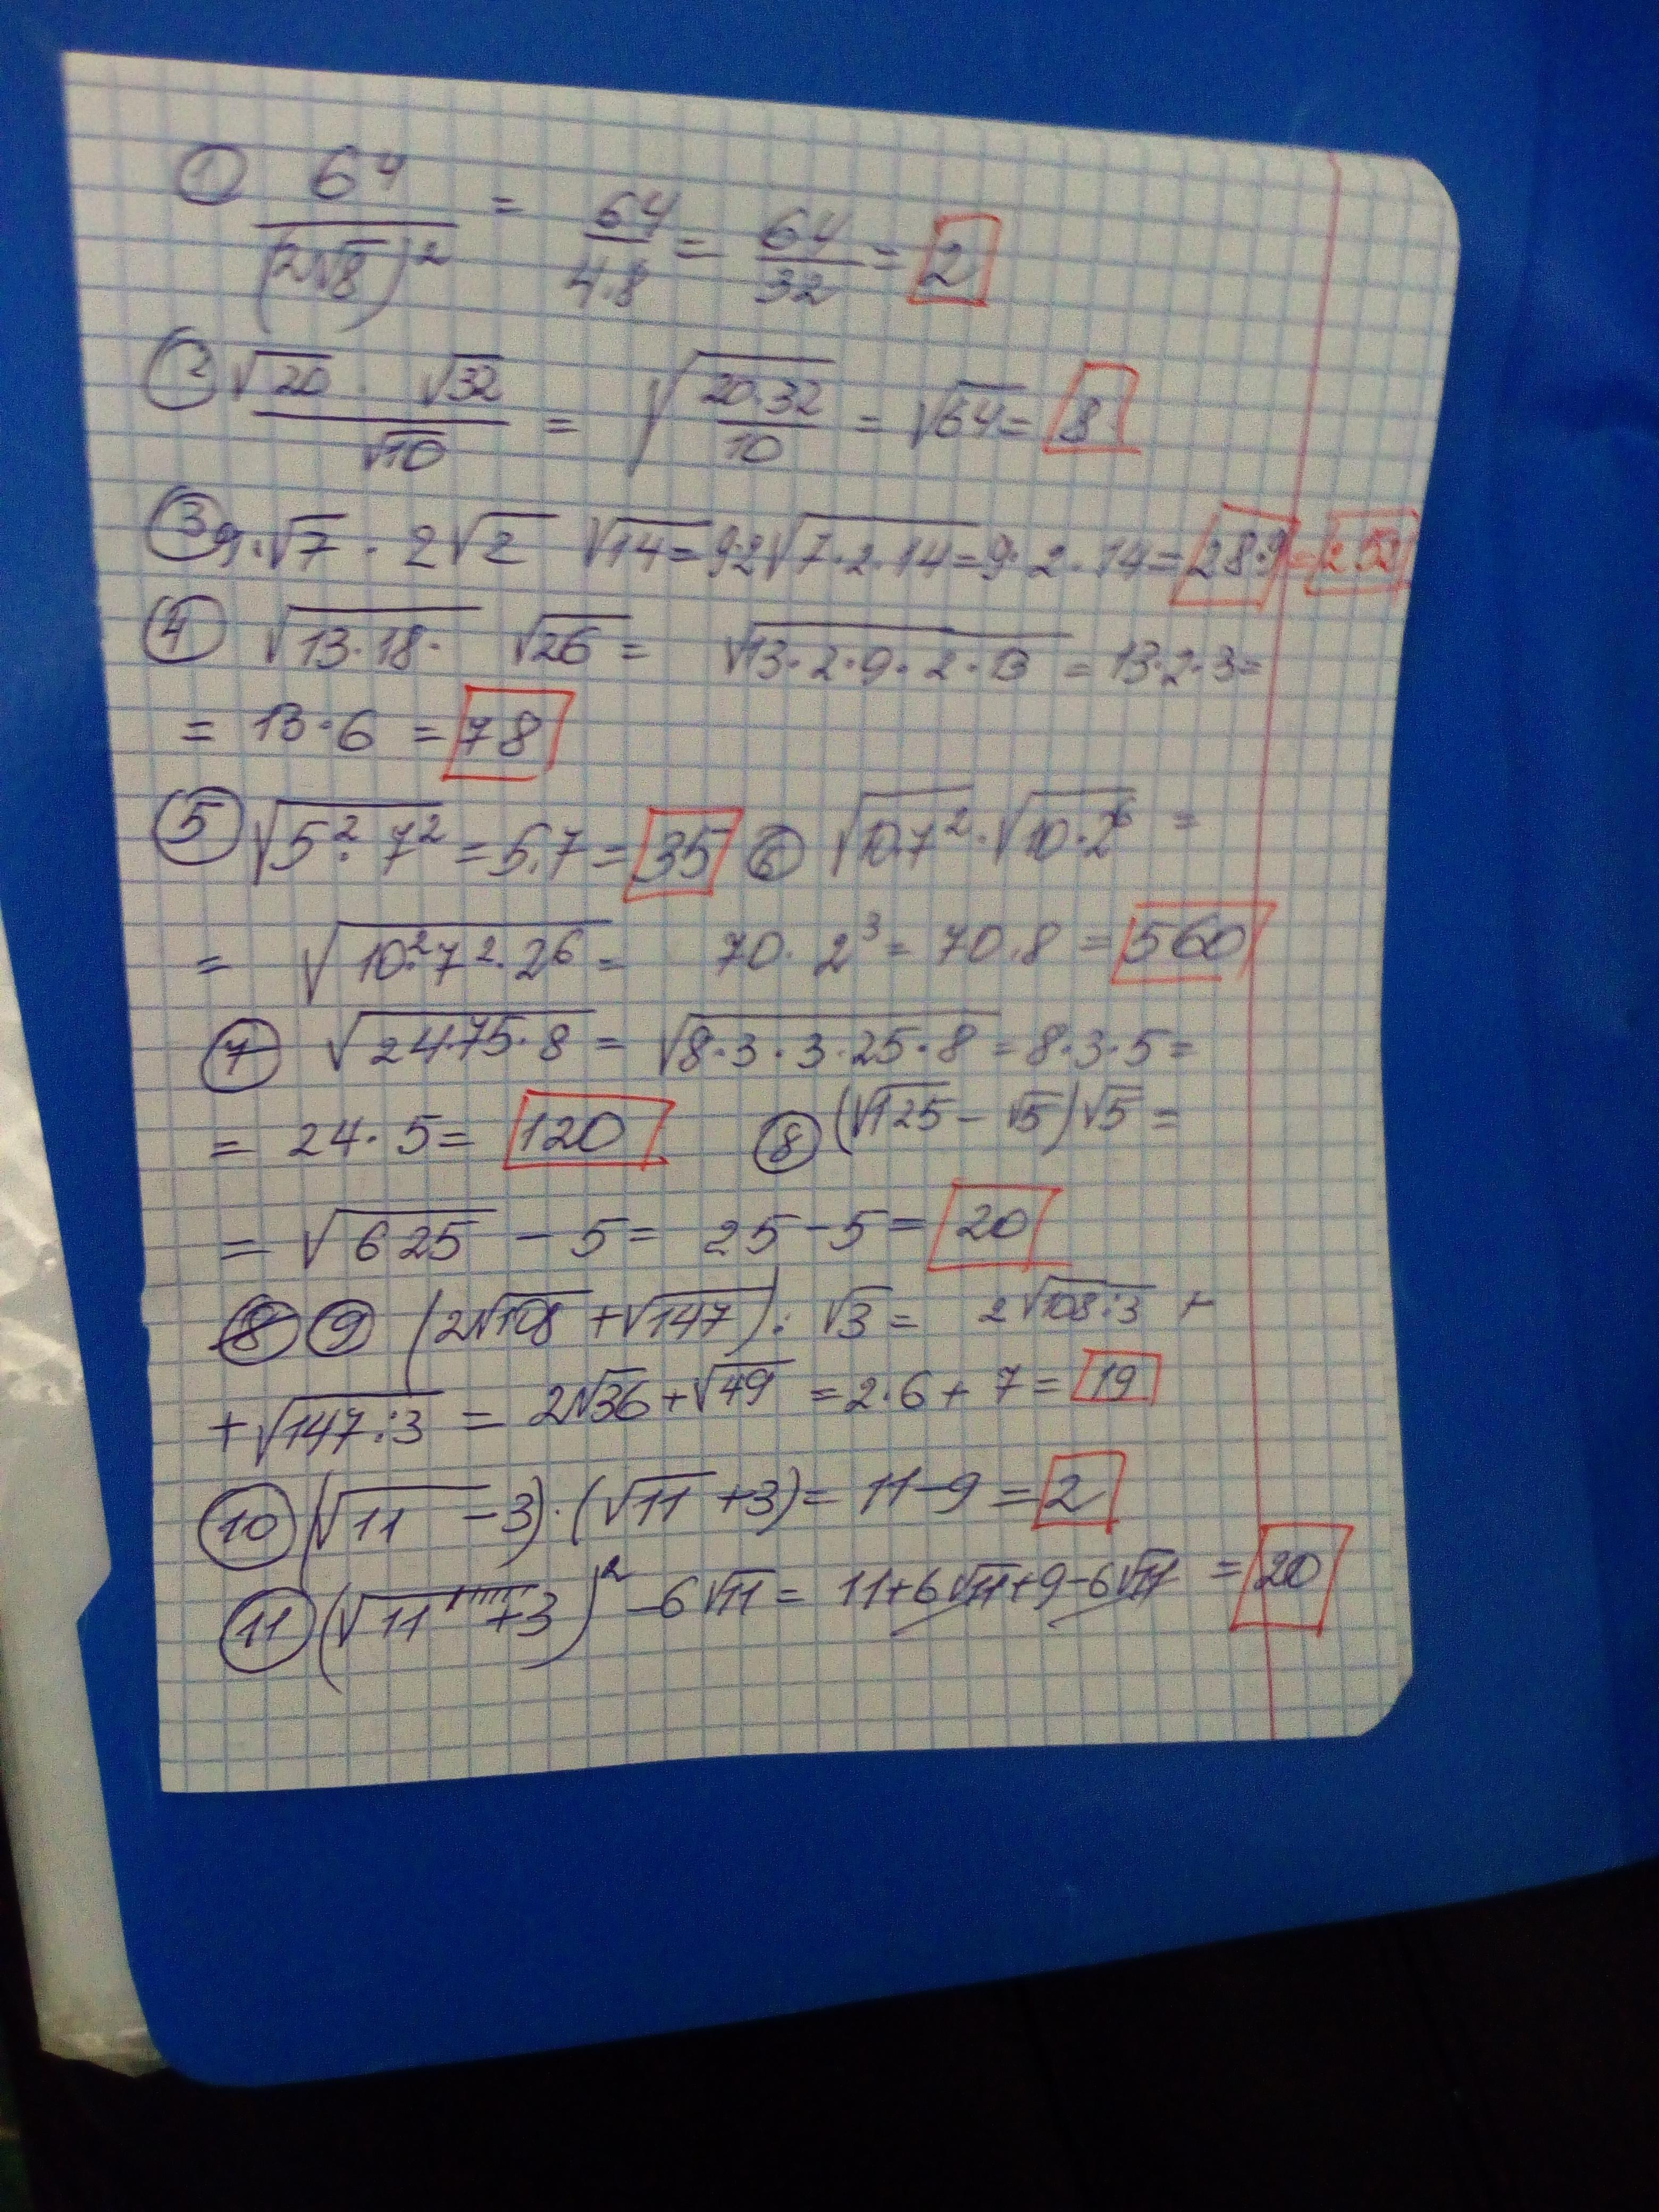 ① 64/(2√8)² = 64/(4·8) = 64/32 = 2
② (√20 · √32)/√10 = √(20·32/10) = √64 = 8
③ 9·√7 · 2√2 √14 = 9·2√(7·2·14) = 9·2·14 = 28·9 = 252
④ √(13·18·) √26 = √(13·2·9·2·13) = 13·2·3 =
= 13·6 = 78
⑤ √(5²·7²) = 5·7 = 35 ⑥ √(10·7²)·√(10·2⁶) =
= √(10²·7²·2⁶) = 70·2³ = 70·8 = 560
⑦ √(24·75·8) = √(8·3·3·25·8) = 8·3·5 =
= 24·5 = 120 ⑧ (√125 − √5)√5 =
= √625 − 5 = 25 − 5 = 20
⑧ ⑨ (2√108 + √147) : √3 = 2√(108:3) +
+ √(147:3) = 2√36 + √49 = 2·6 + 7 = 19
⑩ (√11 − 3)·(√11 + 3) = 11 − 9 = 2
⑪ (√11 + 3)² − 6√11 = 11 + 6√11 + 9 − 6√11 = 20